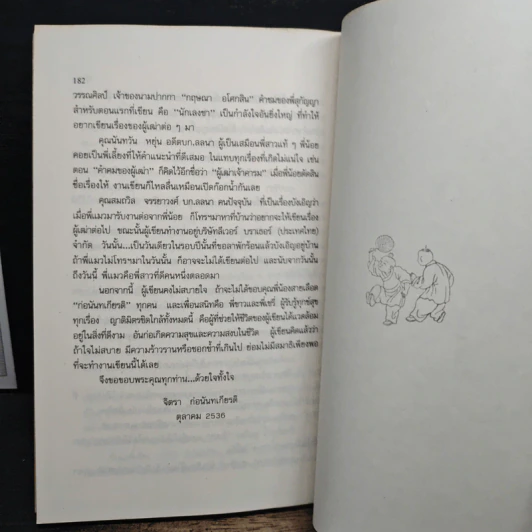 182
วรรณศิลป์ เจ้าของนามปากกา "กฤษณา อโศกสิน" คำชมของพี่สุกัญญา
สำหรับตอนแรกที่เขียน คือ "นักเลงชา" เป็นกำลังใจอันยิ่งใหญ่ ที่ทำให้
อยากเขียนเรื่องของผู้เฒ่าต่อ ๆ มา
คุณนันทวัน หยุ่น อดีตบก.ลลนา ผู้เป็นเสมือนพี่สาวแท้ ๆ พี่น้อย
คอยเป็นพี่เลี้ยงที่ให้คำแนะนำที่ดีเสมอ ในแทบทุกเรื่องที่เกิดไม่แน่ใจ เช่น
ตอน "คำคมของผู้เฒ่า" ก็คิดไว้อีกชื่อว่า "ผู้เฒ่าเจ้าคารม" เมื่อพี่น้อยตัดสิน
ชื่อเรื่องให้ งานเขียนก็ไหลลื่นเหมือนเปิดก๊อกน้ำกันเลย
คุณสมถวิล จรรยาวงศ์ บก.ลลนา คนปัจจุบัน ที่เป็นเรื่องบังเอิญว่า
เมื่อพี่แมวมารับงานต่อจากพี่น้อย ก็โทรฯมาหาที่บ้านว่าอยากจะให้เขียนเรื่อง
ผู้เฒ่าต่อไป ขณะนั้นผู้เขียนทำงานอยู่บริษัทลีเวอร์ บราเธอร์ (ประเทศไทย)
จำกัด วันนั้น...เป็นวันเดียวในรอบปีนั้นที่ขอลาพักร้อนแล้วบังเอิญอยู่บ้าน
ถ้าพี่แมวไม่โทรฯมาในวันนั้น ก็อาจจะไม่ได้เขียนต่อไป และนับจากวันนั้น
ถึงวันนี้ พี่แมวคือพี่สาวที่ดีคนหนึ่งตลอดมา
นอกจากนี้ ผู้เขียนคงไม่สบายใจ ถ้าจะไม่ได้ขอบคุณพี่น้องสายเลือด
"ก่อนันทเกียรติ" ทุกคน และเพื่อนสนิทคือ พี่ขาวและพี่เชรี่ ผู้รับรู้ทุกข์สุข
ทุกเรื่อง ญาติมิตรชิดใกล้ทั้งหมดนี้ คือผู้ที่ช่วยให้ชีวิตของผู้เขียนได้แวดล้อม
อยู่ในสิ่งที่ดีงาม อันก่อเกิดความสุขและความสงบในชีวิต ผู้เขียนคิดแล้วว่า
ถ้าใจไม่สบาย มีความร้าวรานหรือชอกช้ำที่เกินไป ย่อมไม่มีสมาธิเพียงพอ
ที่จะทำงานเขียนนี้ได้เลย
จึงขอขอบพระคุณทุกท่าน...ด้วยใจทั้งใจ
จิตรา ก่อนันทเกียรติ
ตุลาคม 2536